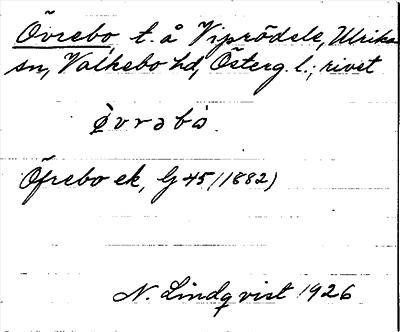 Övrebo, t. å Viprödele, Ulrika
sn, Valkebo hd, Österg. l.; rivet
övrəbo
Öfrebo ek, G 45 (1882)
N. Lindqvist 1926